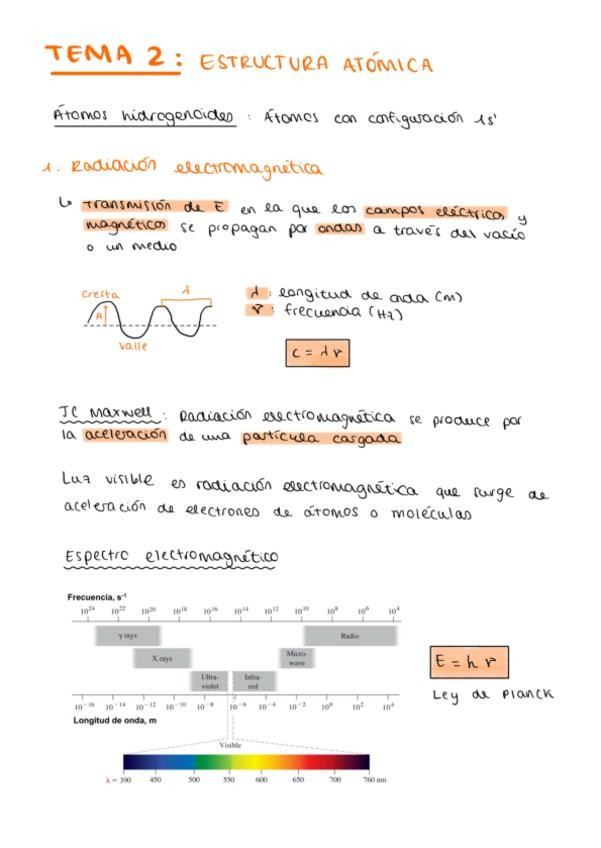 TEMA 2: ESTRUCTURA ATÓMICA
Átomos hidrogenoides: Átomos con configuración 1s¹
1. Radiación electromagnética
↳ transmisión de E en la que los campos eléctricos y
magnéticos se propagan por ondas a través del vacío
o un medio
Cresta
λ
A
Valle
λ: longitud de onda (m)
ν: frecuencia (Hz)
c = λ ν
JC Maxwell: Radiación electromagnética se produce por
la aceleración de una partícula cargada
Luz visible es radiación electromagnética que surge de
aceleración de electrones de átomos o moléculas
Espectro electromagnético
Frecuencia, s⁻¹
10²⁴ 10²² 10²⁰ 10¹⁸ 10¹⁶ 10¹⁴ 10¹² 10¹⁰ 10⁸ 10⁶ 10⁴
γ rays
Radio
X rays
Micro-
wave
Ultra-
violet
Infra-
red
10⁻¹⁶ 10⁻¹⁴ 10⁻¹² 10⁻¹⁰ 10⁻⁸ 10⁻⁶ 10⁻⁴ 10⁻² 10⁰ 10² 10⁴
Longitud de onda, m
Visible
λ = 390 450 500 550 600 650 700 760 nm
E = h ν
Ley de Planck